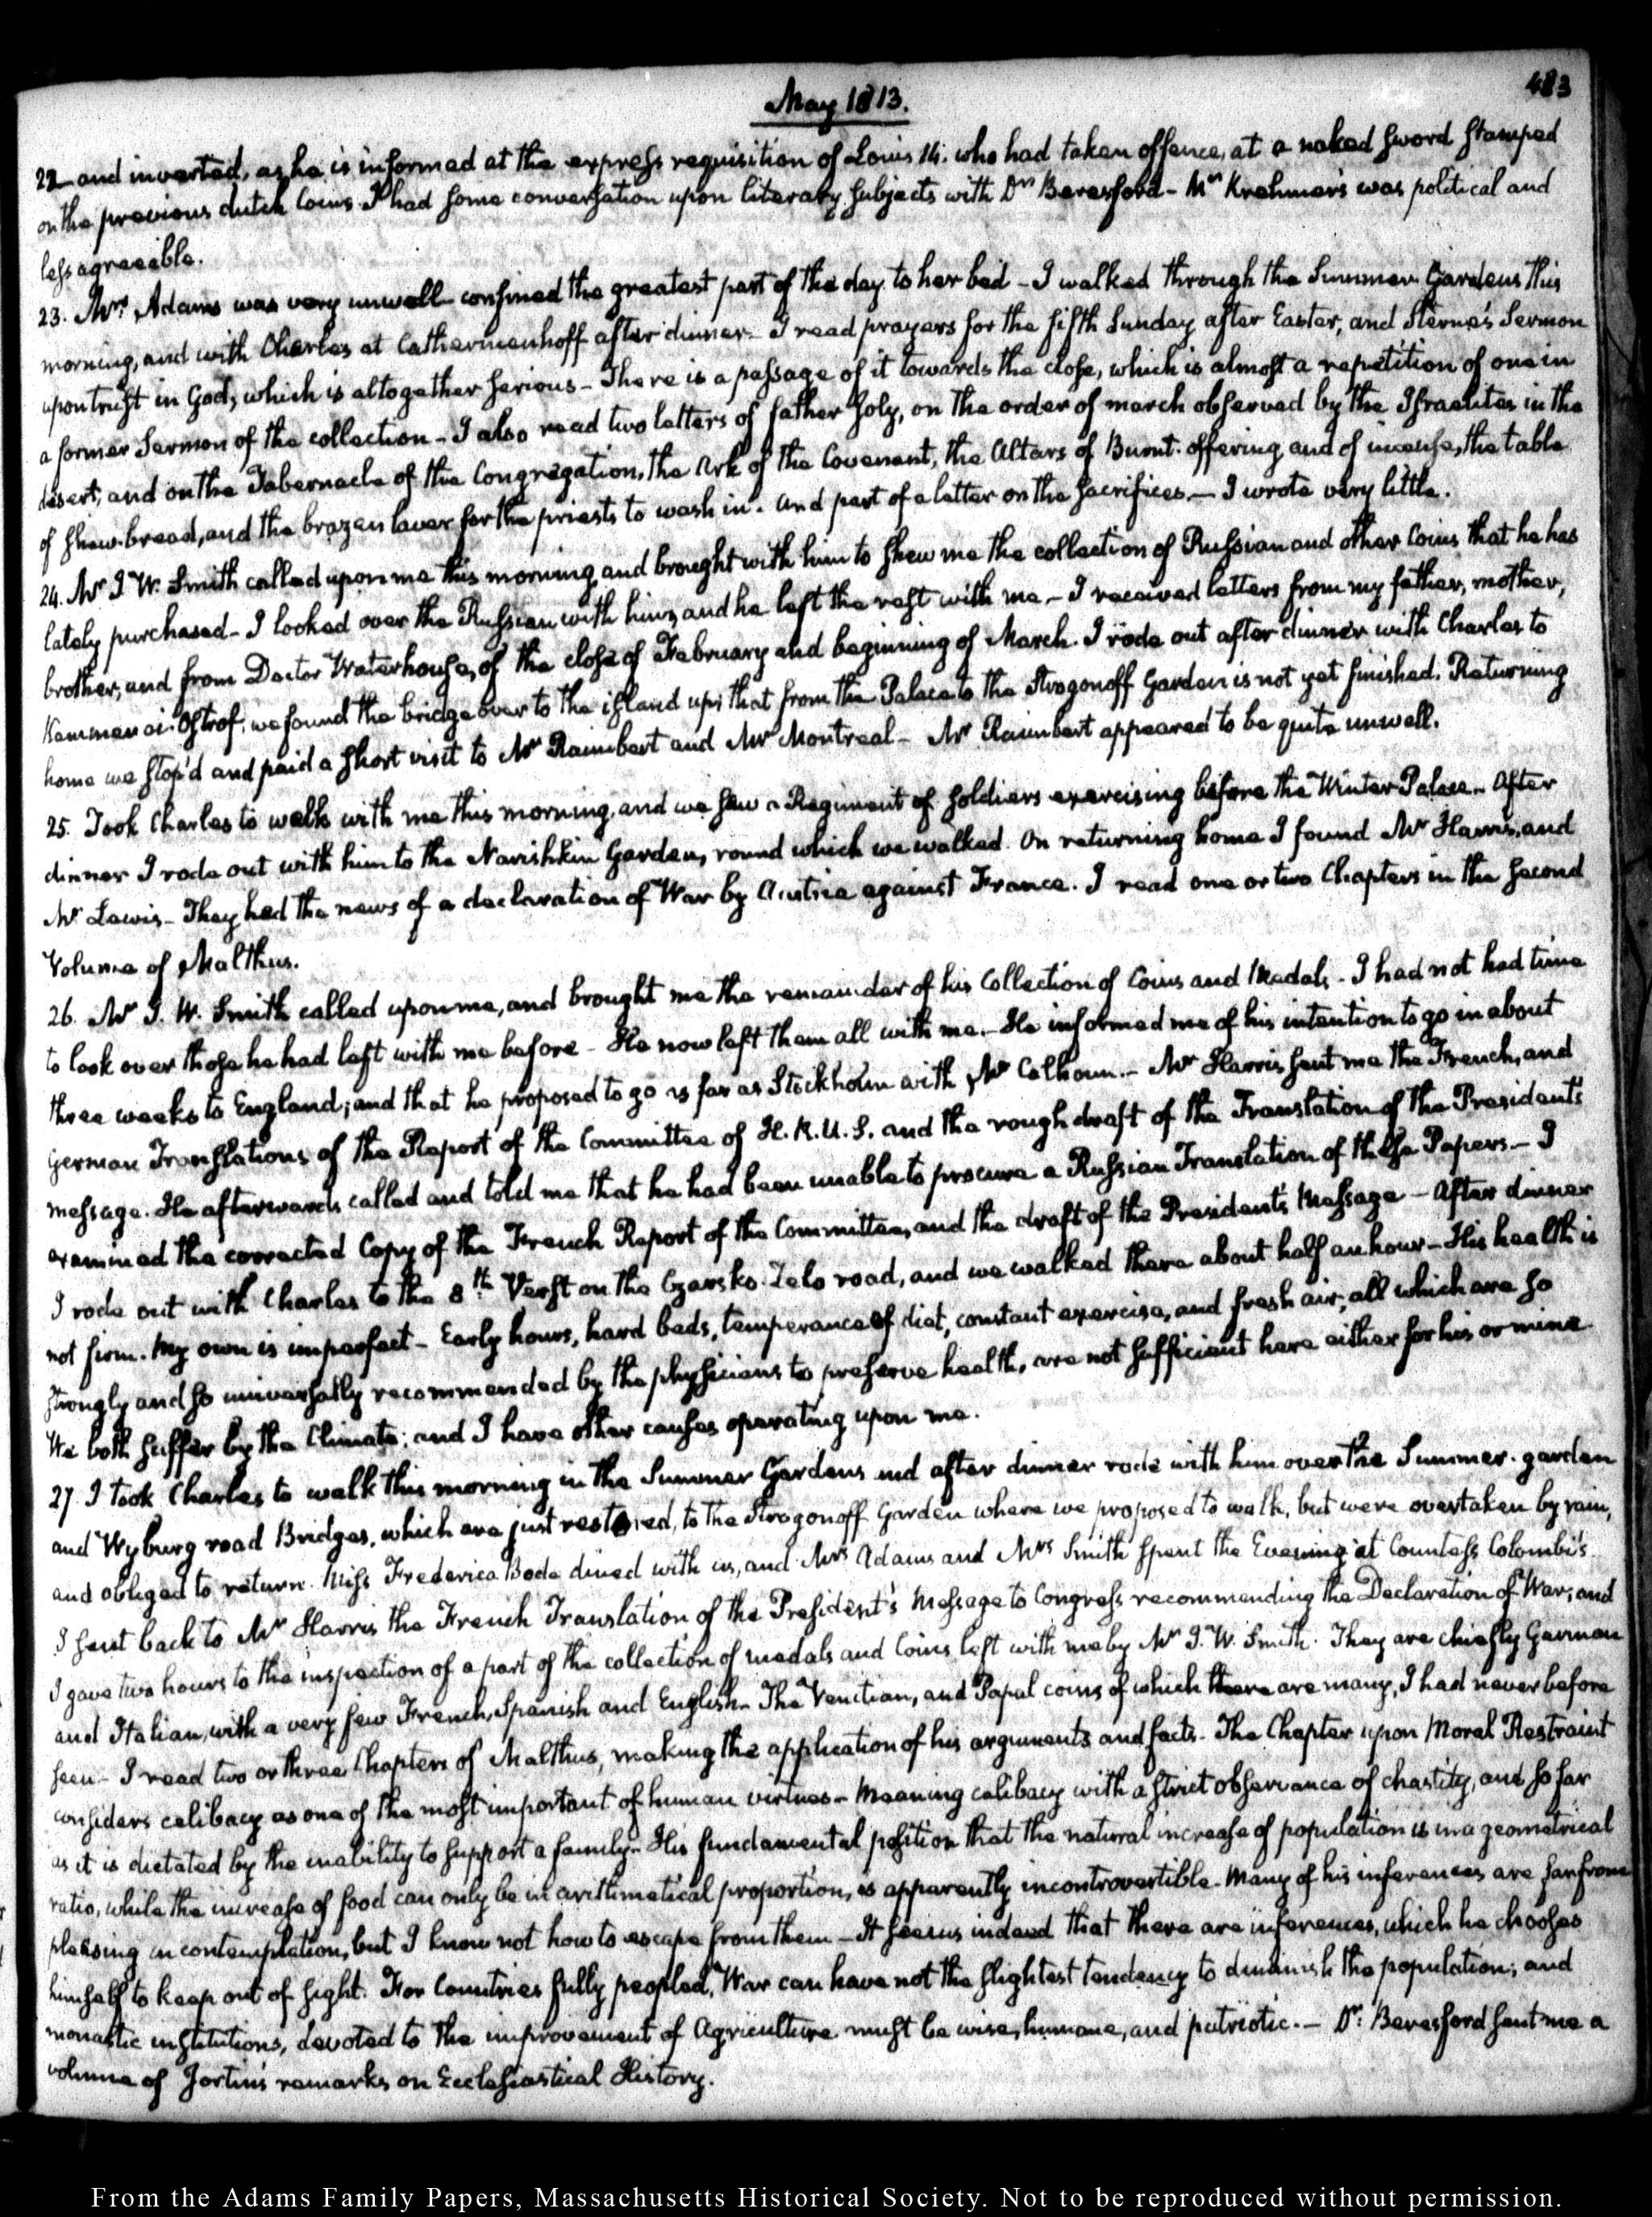 May 1813.
483
22 and inverted, as he is informed at the express requisition of Louis 14. who had taken offence, at a naked sword stamped
on the previous dutch Coins. I had some conversation upon literary subjects with Dr. Beresford - Mr Krehmer's was political and
less agreeable.
23. Mrs. Adams was very unwell confined the greatest part of the day to her bed - I walked through the Summer Gardens this
morning, and with Charles at Catherinenhoff after dinner - I read prayers for the fifth Sunday after Easter, and Sterne's Sermon
upon trust in God, which is altogether serious - There is a passage of it towards the close, which is almost a repetition of one in
a former Sermon of the collection - I also read two letters of father Joly, on the order of march observed by the Israelites in the
desert, and on the Tabernacle of the Congregation, the Ark of the Covenant, the Altars of Burnt-offering and of incense, the table
of Shew-bread, and the brazen laver for the priests to wash in. and part of a letter on the sacrifices. — I wrote very little.
24. Mr J. W. Smith called upon me this morning and brought with him to shew me the collection of Russian and other Coins that he has
lately purchased - I looked over the Russian with him, and he left the rest with me - I received letters from my father, mother,
brother, and from Doctor Waterhouse, of the close of February and beginning of March. I rode out after dinner with Charles to
Kammenoi-Ostrof, we found the bridge over to the island up; that from the Palace to the Strogonoff Garden is not yet finished. Returning
home we stop'd and paid a short visit to Mr Raimbert and Mr Montreal - Mr Raimbert appeared to be quite unwell.
25. Took Charles to walk with me this morning, and we saw a Regiment of soldiers exercising before the Winter Palace - After
dinner I rode out with him to the Narishkin Garden, round which we walked. On returning home I found Mr Harris, and
Mr Lewis - They had the news of a declaration of War by Austria against France. I read one or two Chapters in the second
Volume of Malthus.
26. Mr J. W. Smith called upon me, and brought me the remainder of his Collection of Coins and Medals - I had not had time
to look over those he had left with me before - He now left them all with me - He informed me of his intention to go in about
three weeks to England; and that he proposed to go as far as Stockholm with Mr Calhoun. - Mr Harris sent me the French, and
German Translations of the Report of the Committee of H. R. U. S. and the rough draft of the Translation of the President's
message. He afterwards called and told me that he had been unable to procure a Russian Translation of these Papers. - I
examined the corrected Copy of the French Report of the Committee, and the draft of the President's Message - After dinner
I rode out with Charles to the 8th. Verst on the Czarsko-Zelo road, and we walked there about half an hour - His health is
not firm. My own is imperfect - Early hours, hard beds, temperance of diet, constant exercise, and fresh air, all which are so
strongly and so universally recommended by the physicians to preserve health, are not sufficient here either for his or mine
We both suffer by the Climate; and I have other causes operating upon me.
27. I took Charles to walk this morning in the Summer Gardens and after dinner rode with him over the Summer-garden
and Wyburg road Bridges, which are just restored, to the Strogonoff Garden where we proposed to walk, but were overtaken by rain,
and obliged to return. Miss Frederica Bode dined with us, and Mrs Adams and Mrs Smith spent the Evening at Countess Colombi's
I sent back to Mr Harris the French Translation of the President's Message to Congress recommending the Declaration of War; and
I gave two hours to the inspection of a part of the collection of medals and Coins left with me by Mr J. W. Smith. They are chiefly German
and Italian, with a very few French, Spanish and English - The Venetian, and Papal coins of which there are many, I had never before
seen - I read two or three Chapters of Malthus, making the application of his arguments and facts - The Chapter upon Moral Restraint
considers celibacy as one of the most important of human virtues - Meaning celibacy with a strict observance of chastity, and so far
as it is dictated by the inability to support a family - His fundamental position that the natural increase of population is in a geometrical
ratio, while the increase of food can only be in arithmetical proportion, is apparently incontrovertible. Many of his inferences are far from
pleasing in contemplation, but I know not how to escape from them - It seems indeed that there are inferences, which he chooses
himself to keep out of sight. For Countries fully peopled, War can have not the slightest tendency to diminish the population; and
monastic institutions, devoted to the improvement of Agriculture must be wise, humane, and patriotic. - Dr. Beresford sent me a
volume of Jortin's remarks on Ecclesiastical History.
From the Adams Family Papers, Massachusetts Historical Society. Not to be reproduced without permission.